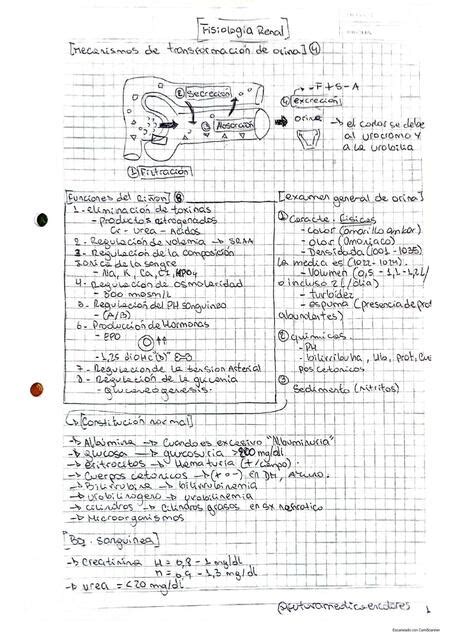 [Fisiología Renal]
[Mecanismos de transformación de orina] 4
2 Secreción
3 Absorción
1 Filtración
→ F + S - A
4 excreción
orina → el color se debe
al urocromo y
a la urobilina
[Funciones del riñon] 8
1 - eliminación de toxinas
- productos nitrogenados
Cr - urea - acidos
2 - Regulación de volemia → SRAA
3 - Regulación de la composición
Iónica de la sangre
- Na, K, Ca, Cl, HPO4
4 - Regulación de osmolaridad
- 300 mosm/L
5 - Regulación del PH sanguineo
- (A/B)
6 - Producción de Hormonas
- EPO
- 1,25 diOHC"D"
7 - Regulación de la tension Arterial
8 - Regulación de la glucemia
- Gluconeogenesis.
[examen general de orina]
1 Caracte. Físicas
- color (amarillo ambar)
- olor (amoniaco)
- Densidad (1001 - 1035)
la media es (1022 - 1024).
- Volumen (0,5 - 1,1 - 1,2 L/
o incluso 2 L/día)
- turbidez
- espuma (presencia de prot
abundantes)
2 químicas
- PH
- bilirrubina, Hb, Prot, Cue
pos cetonicos
3
Sedimento (nitritos)
[Constitución normal]
→ Albumina → Cuando es excesivo "Albuminuria"
→ glucosa → glucosuria mg/dl
→ eritrocitos → Hematuria (+/campo).
→ Cuerpos cetonicos → (+ o -) en DM, Ayuno.
→ Bilirrubina → bilirrubinemia
→ urobilinogeno → urobilinemia
→ cilindros → cilindros grasos en Sx nefrotico
→ Microorganismos
[BQ. sanguinea]
→ Creatinina H = 0,8 - 1 mg/dl
= 0,9 - 1,3 mg/dl
→ urea = < 20 mg/dl
1
Escaneado con CamScanner